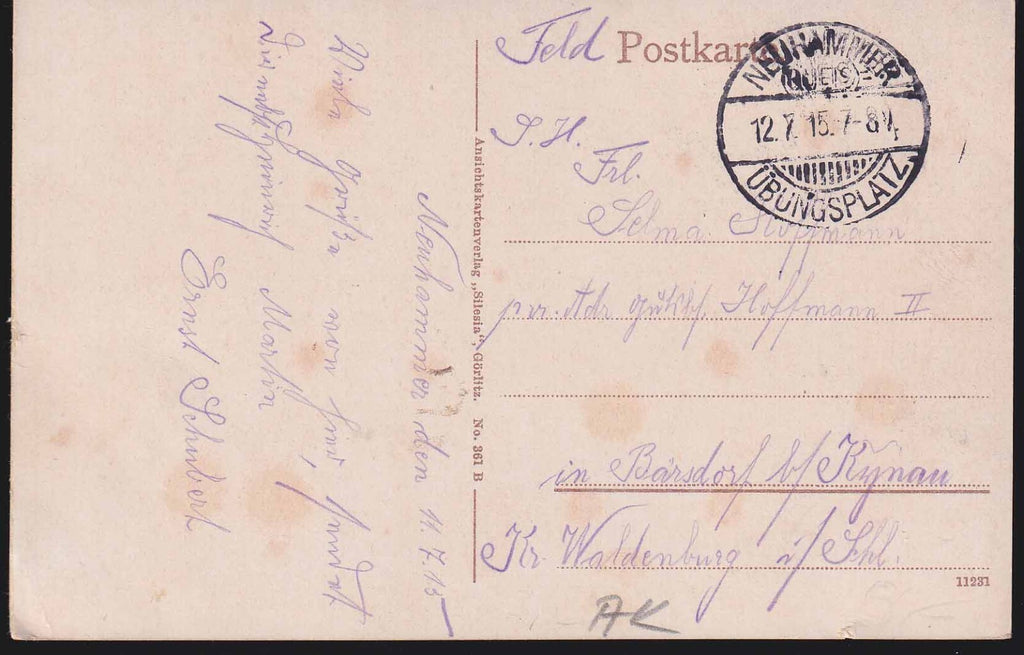 Feld Postkarte
NEUHAMMER
(QUEIS)
12.7.15.7-8V.
ÜBUNGSPLATZ
S. H.
Frl.
Selma Hoffmann
per. Adr. Hoffmann II
in Bärsdorf b/ Kynau
Kr. Waldenburg i/ Schl.
11231
AK
Ansichtskartenverlag „Silesia“, Görlitz. No. 361 B
Neuhammer den 11.7.15
Viele Grüße von hier, sendet
Martin
Ernst Schubert